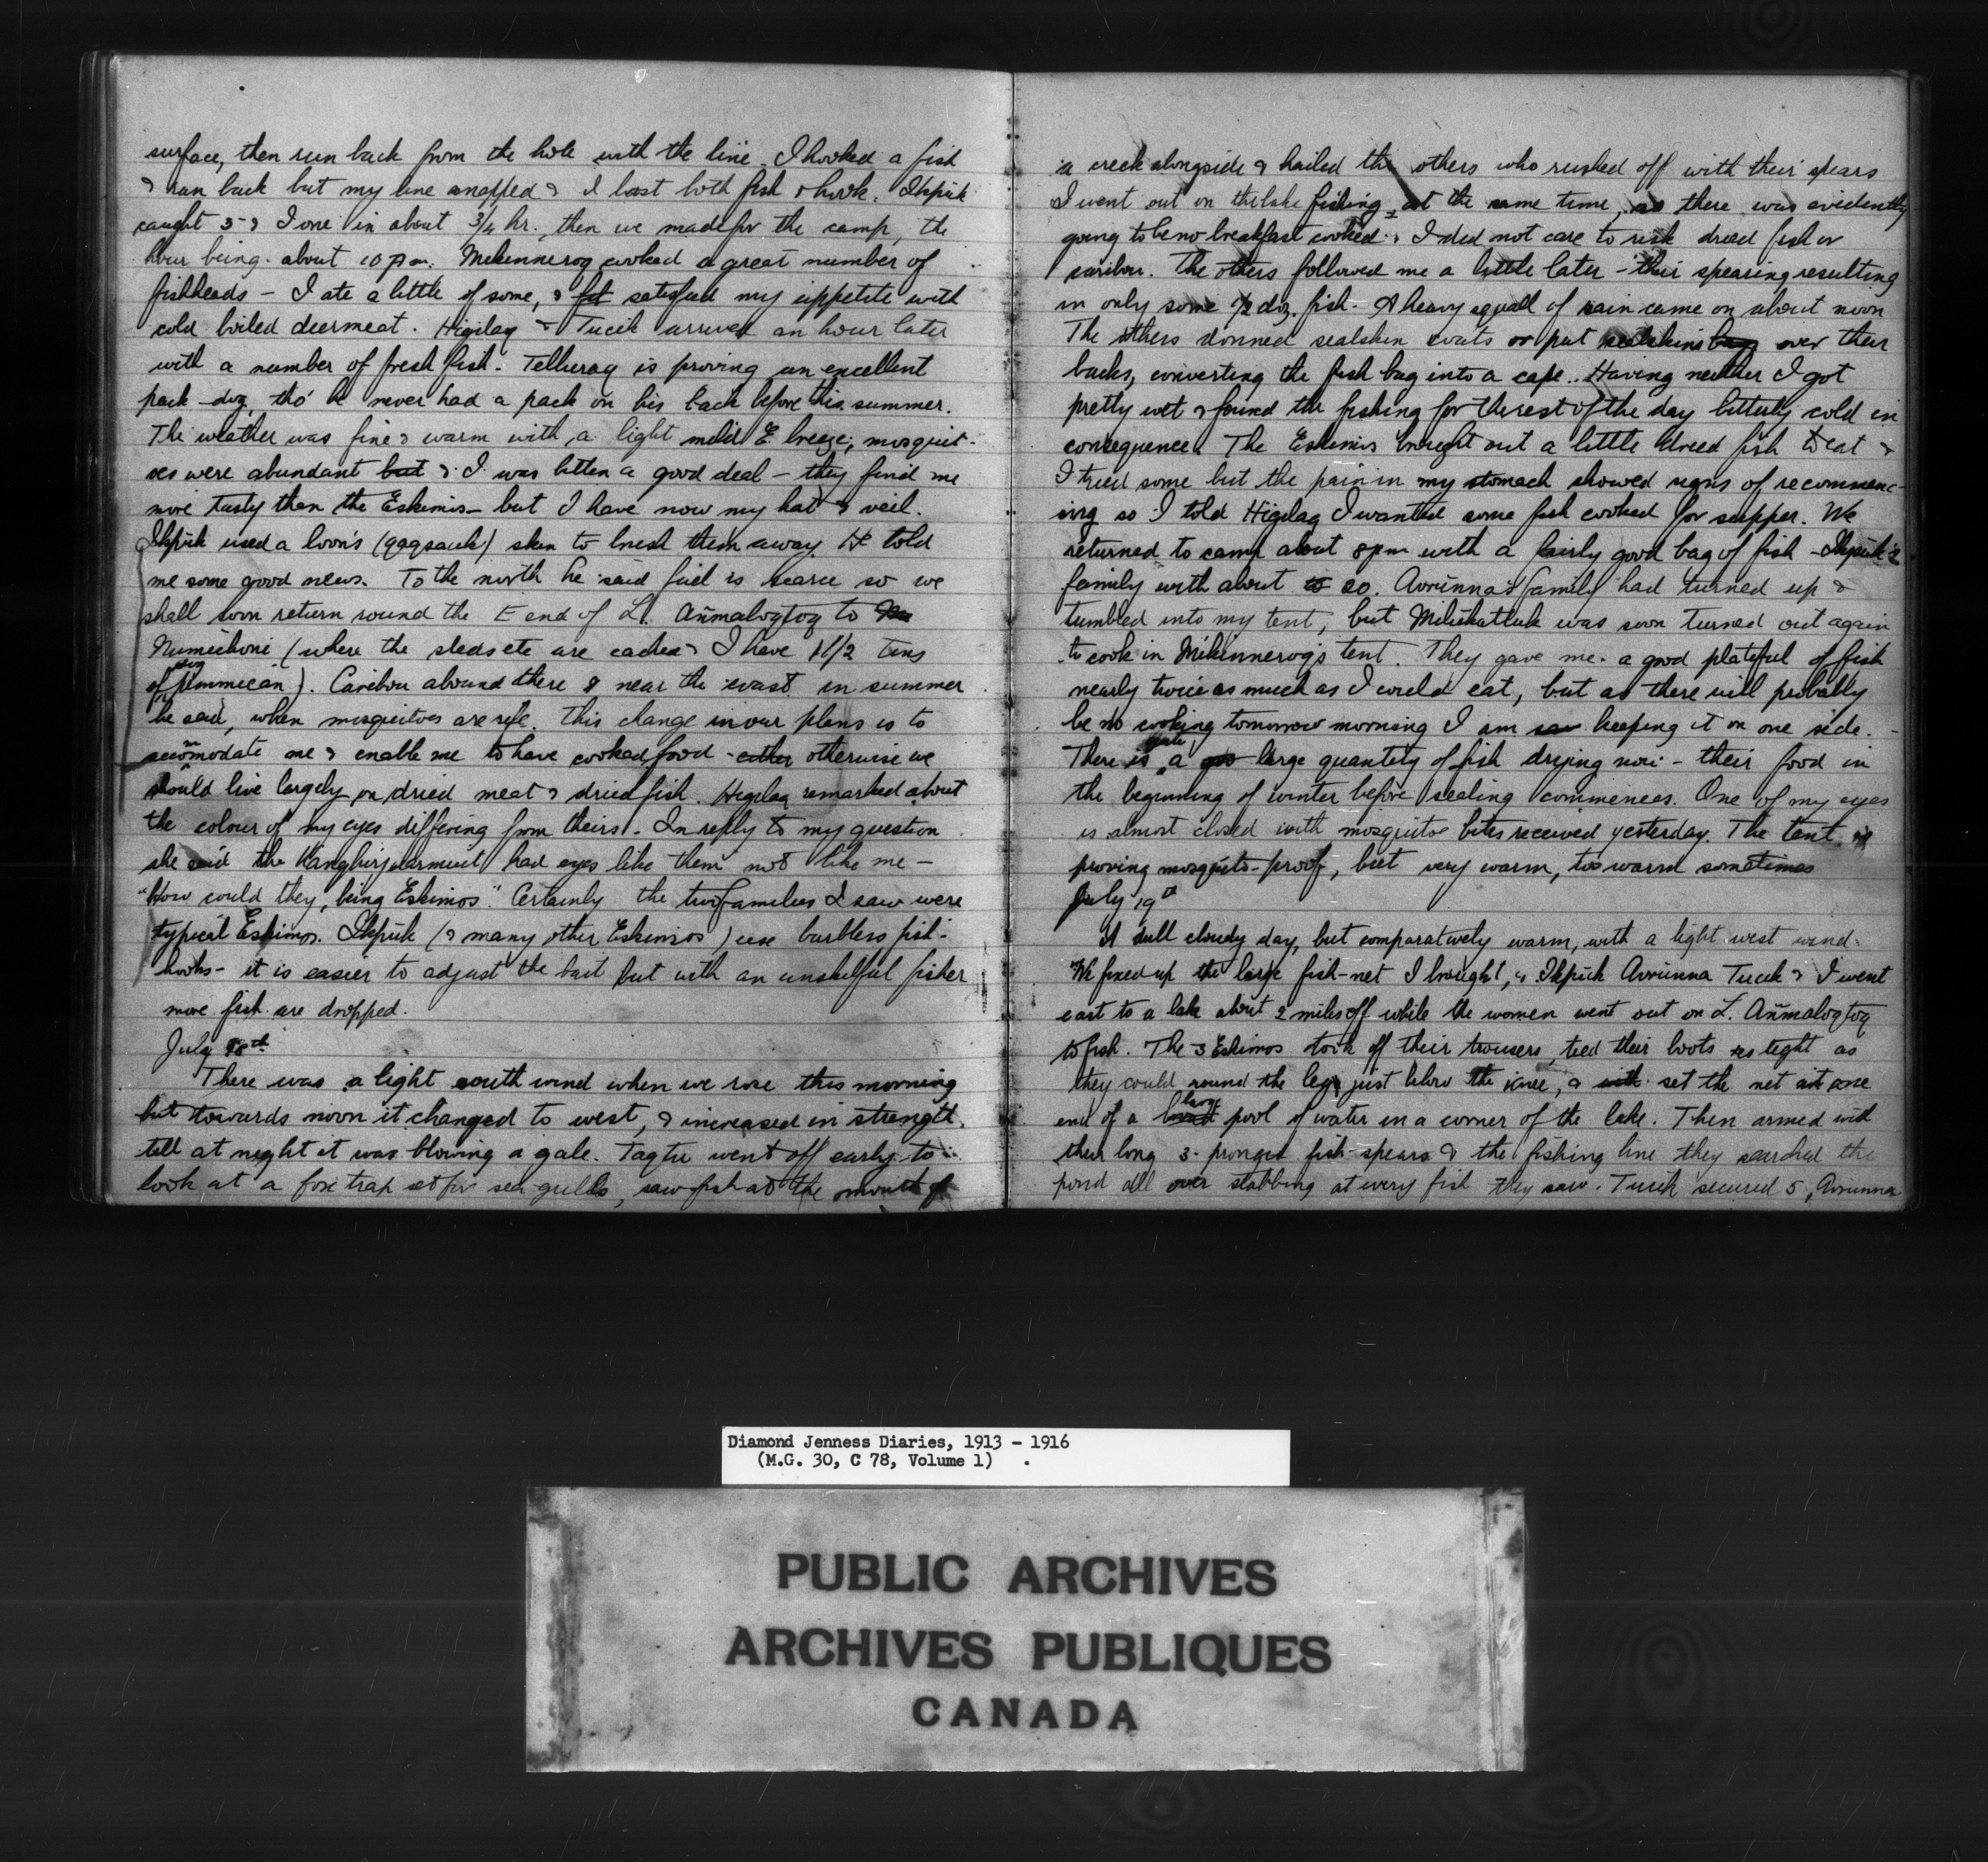 surface, then run back from the hole with the line. I hooked a fish
& ran back but my line snapped & I lost both fish & hook. Ikpuk
caught 5 & I one in about 3/4 hr., then we made for the camp, the
hour being about 10 pm. Mekinneroq cooked a great number of
fishheads – I ate a little of some, & satisfied my appetite with
cold boiled deermeat. Higilaq & Tucik arrived an hour later
with a number of fresh fish. Telluraq is proving an excellent
pack-dog, tho' he never had a pack on his back before this summer.
The weather was fine & warm with a light mild E breeze; mosquit-
oes were abundant but & I was bitten a good deal – they find me
more tasty than the Eskimos – but I have now my hat & veil.
Ikpuk used a loon's (qaqsauk) skin to brush them away. He told
me some good news. To the north he said fuel is scarce so we
shall soon return round the E end of L. Añmaloqtoq to
Numichoin (where the sleds etc are cached & I have 1 1/2 tins
of dog pemmican). Caribou abound there & near the coast in summer
he said, when mosquitoes are rife. This change in our plans is to
accommodate me & enable me to have cooked food – either otherwise we
should live largely on dried meat & dried fish. Higilaq remarked about
the colour of my eyes differing from theirs. In reply to my question
she said the Kanghirjuarmiut had eyes like them not like me –
"How could they, being Eskimos". Certainly the two families I saw were
typical Eskimos. Ikpuk (& many other Eskimos) use barbless fish-
hooks – it is easier to adjust the bait but with an unskilful fisher
more fish are dropped.
July 18th
There was a light south wind when we rose this morning
but towards noon it changed to west, & increased in strength
till at night it was blowing a gale. Taqtu went off early to
look at a fox trap set for sea-gulls, saw fish at the mouth of
a creek alongside & hailed the others who rushed off with their spears
I went out on the lake fishing at the same time, as there was evidently
going to be no breakfast cooked & I did not care to risk dried fish or
caribou. The others followed me a little later – their spearing resulting
in only some 1/2 doz. fish. A heavy squall of rain came on about noon
The others donned sealskin coats or put sealskins bags over their
backs, converting the fish bag into a cape. Having neither I got
pretty wet & found the fishing for the rest of the day bitterly cold in
consequence. The Eskimos brought out a little dried fish to eat &
I tried some but the pain in my stomach showed signs of recommenc-
ing so I told Higilaq I wanted some fish cooked for supper. We
returned to camp about 8 pm with a fairly good bag of fish – Ikpuk's
family with about 20. Avrunna's family had turned up &
tumbled into my tent, but Milukattuk was soon turned out again
to cook in Mikinneroq's tent. They gave me a good plateful of fish
nearly twice as much as I could eat, but as there will probably
be no cooking tomorrow morning I am keeping it on one side.
There is quite a large quantity of fish drying now – their food in
the beginning of winter before sealing commences. One of my eyes
is almost closed with mosquitoe bites received yesterday. The tent is
proving mosquito-proof, but very warm, too warm sometimes
July 19th
A dull cloudy day, but comparatively warm, with a light west wind.
We fixed up the large fish-net I brought, & Ikpuk Avrunna Tucik & I went
east to a lake about 2 miles off while the women went out on L. Añmaloqtoq
to fish. The 3 Eskimos took off their trousers, tied their boots as tight as
they could round the legs just below the knee, & set the net at one
end of a large pool of water in a corner of the lake. Then armed with
their long 3-pronged fish-spears & the fishing line they searched the
pond all over stabbing at every fish they saw. Tucik secured 5, Avrunna
Diamond Jenness Diaries, 1913 - 1916
(M.G. 30, C 78, Volume 1)
PUBLIC ARCHIVES
ARCHIVES PUBLIQUES
CANADA